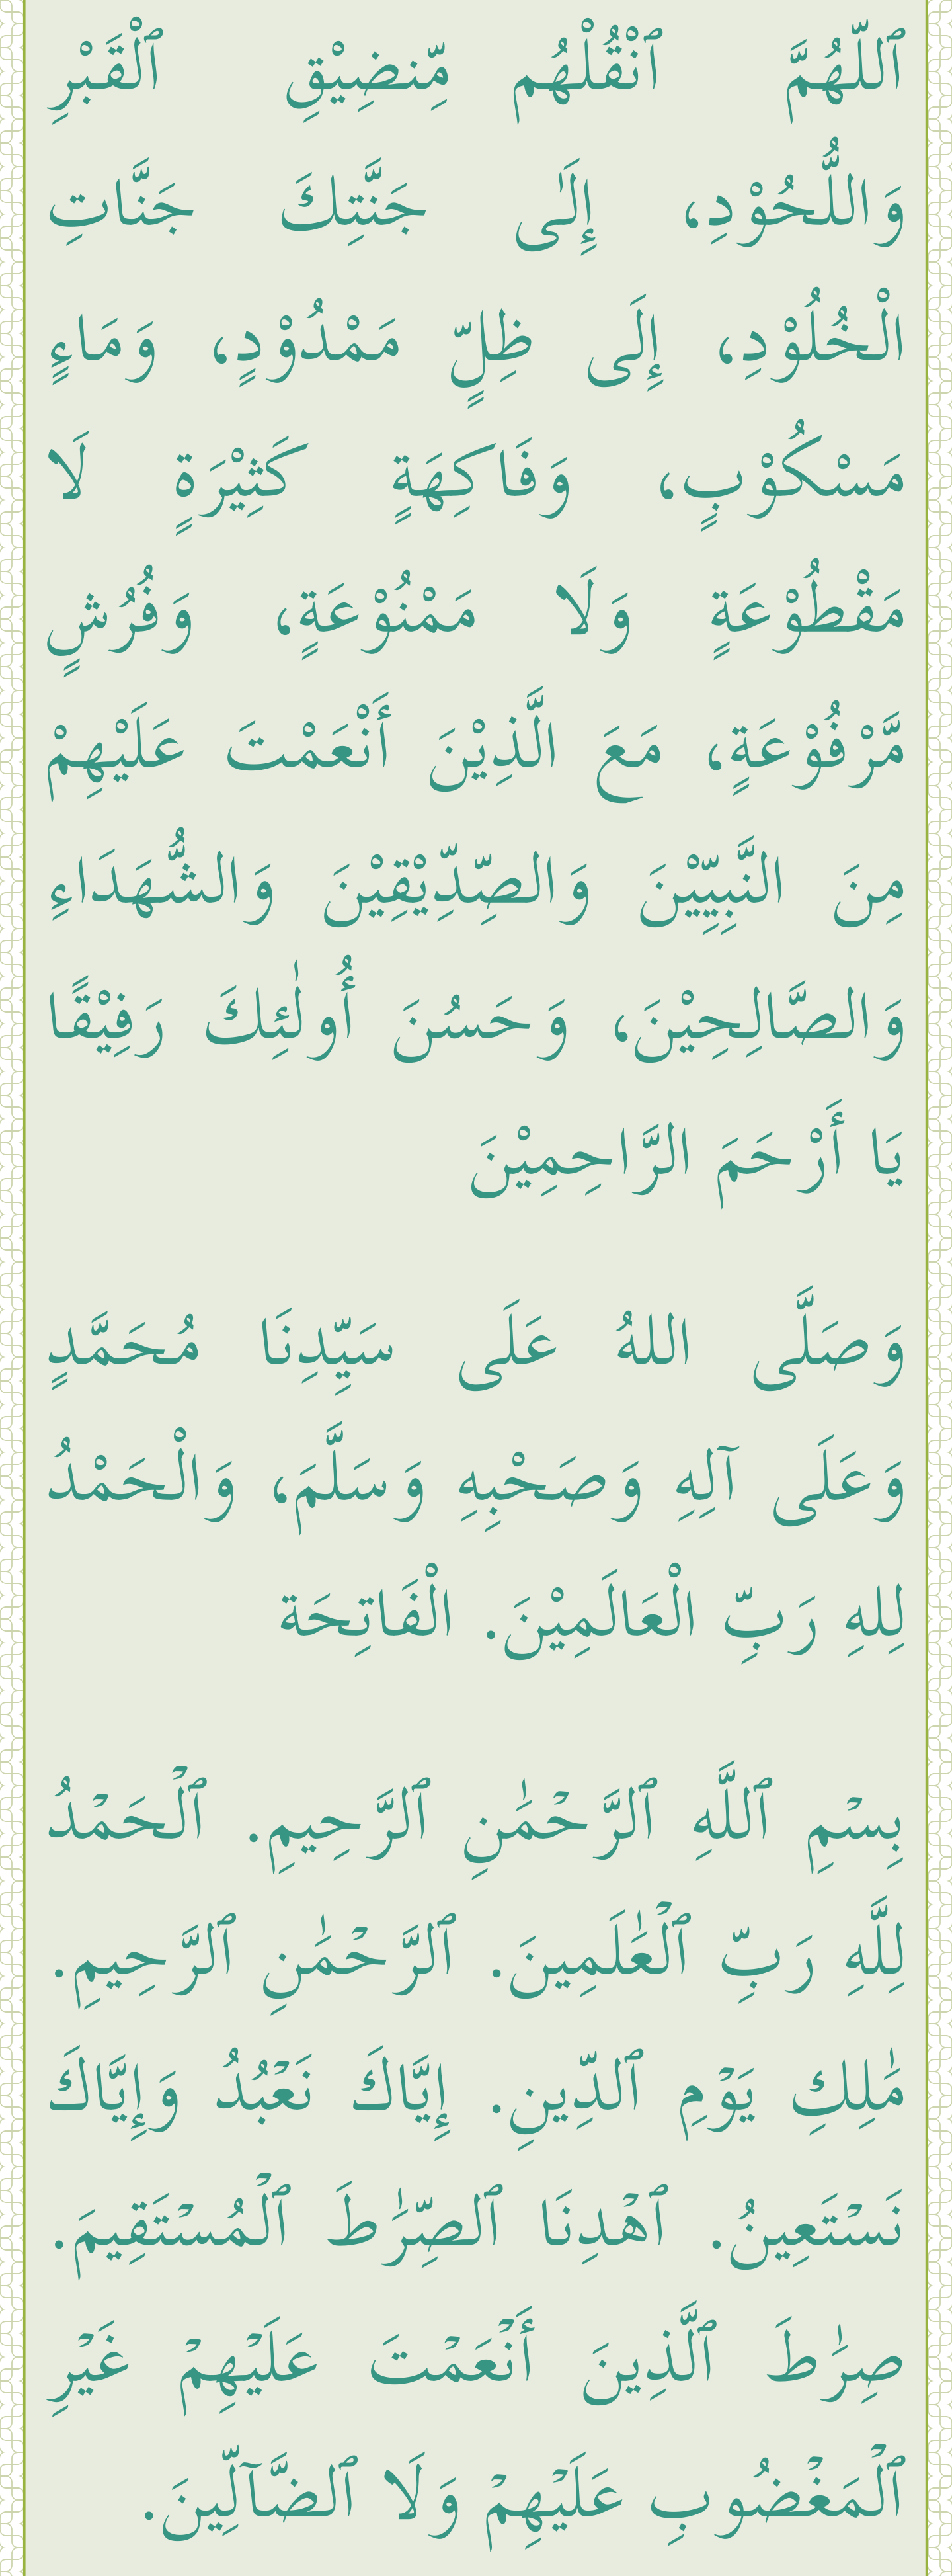 ٱللّٰهُمَّ ٱنْقُلْهُم مِّنضِيْقِ ٱلْقَبْرِ
وَاللُّحُوْدِ، إِلَٰى جَنَّتِكَ جَنَّاتِ
الْخُلُوْدِ، إِلَى ظِلٍّ مَمْدُوْدٍ، وَمَاءٍ
مَسْكُوْبٍ، وَفَاكِهَةٍ كَثِيْرَةٍ لَا
مَقْطُوْعَةٍ وَلَا مَمْنُوْعَةٍ، وَفُرُشٍ
مَّرْفُوْعَةٍ، مَعَ الَّذِيْنَ أَنْعَمْتَ عَلَيْهِمْ
مِنَ النَّبِيِّيْنَ وَالصِّدِّيْقِيْنَ وَالشُّهَدَاءِ
وَالصَّالِحِيْنَ، وَحَسُنَ أُولٰئِكَ رَفِيْقًا
يَا أَرْحَمَ الرَّاحِمِيْنَ
وَصَلَّى اللهُ عَلَى سَيِّدِنَا مُحَمَّدٍ
وَعَلَى آلِهِ وَصَحْبِهِ وَسَلَّمَ، وَالْحَمْدُ
لِلهِ رَبِّ الْعَالَمِيْنَ. الْفَاتِحَة
بِسۡمِ ٱللَّهِ ٱلرَّحۡمَٰنِ ٱلرَّحِيمِ. ٱلۡحَمۡدُ
لِلَّهِ رَبِّ ٱلۡعَٰلَمِينَ. ٱلرَّحۡمَٰنِ ٱلرَّحِيمِ.
مَٰلِكِ يَوۡمِ ٱلدِّينِ. إِيَّاكَ نَعۡبُدُ وَإِيَّاكَ
نَسۡتَعِينُ. ٱهۡدِنَا ٱلصِّرَٰطَ ٱلۡمُسۡتَقِيمَ.
صِرَٰطَ ٱلَّذِينَ أَنۡعَمۡتَ عَلَيۡهِمۡ غَيۡرِ
ٱلۡمَغۡضُوبِ عَلَيۡهِمۡ وَلَا ٱلضَّآلِّينَ.